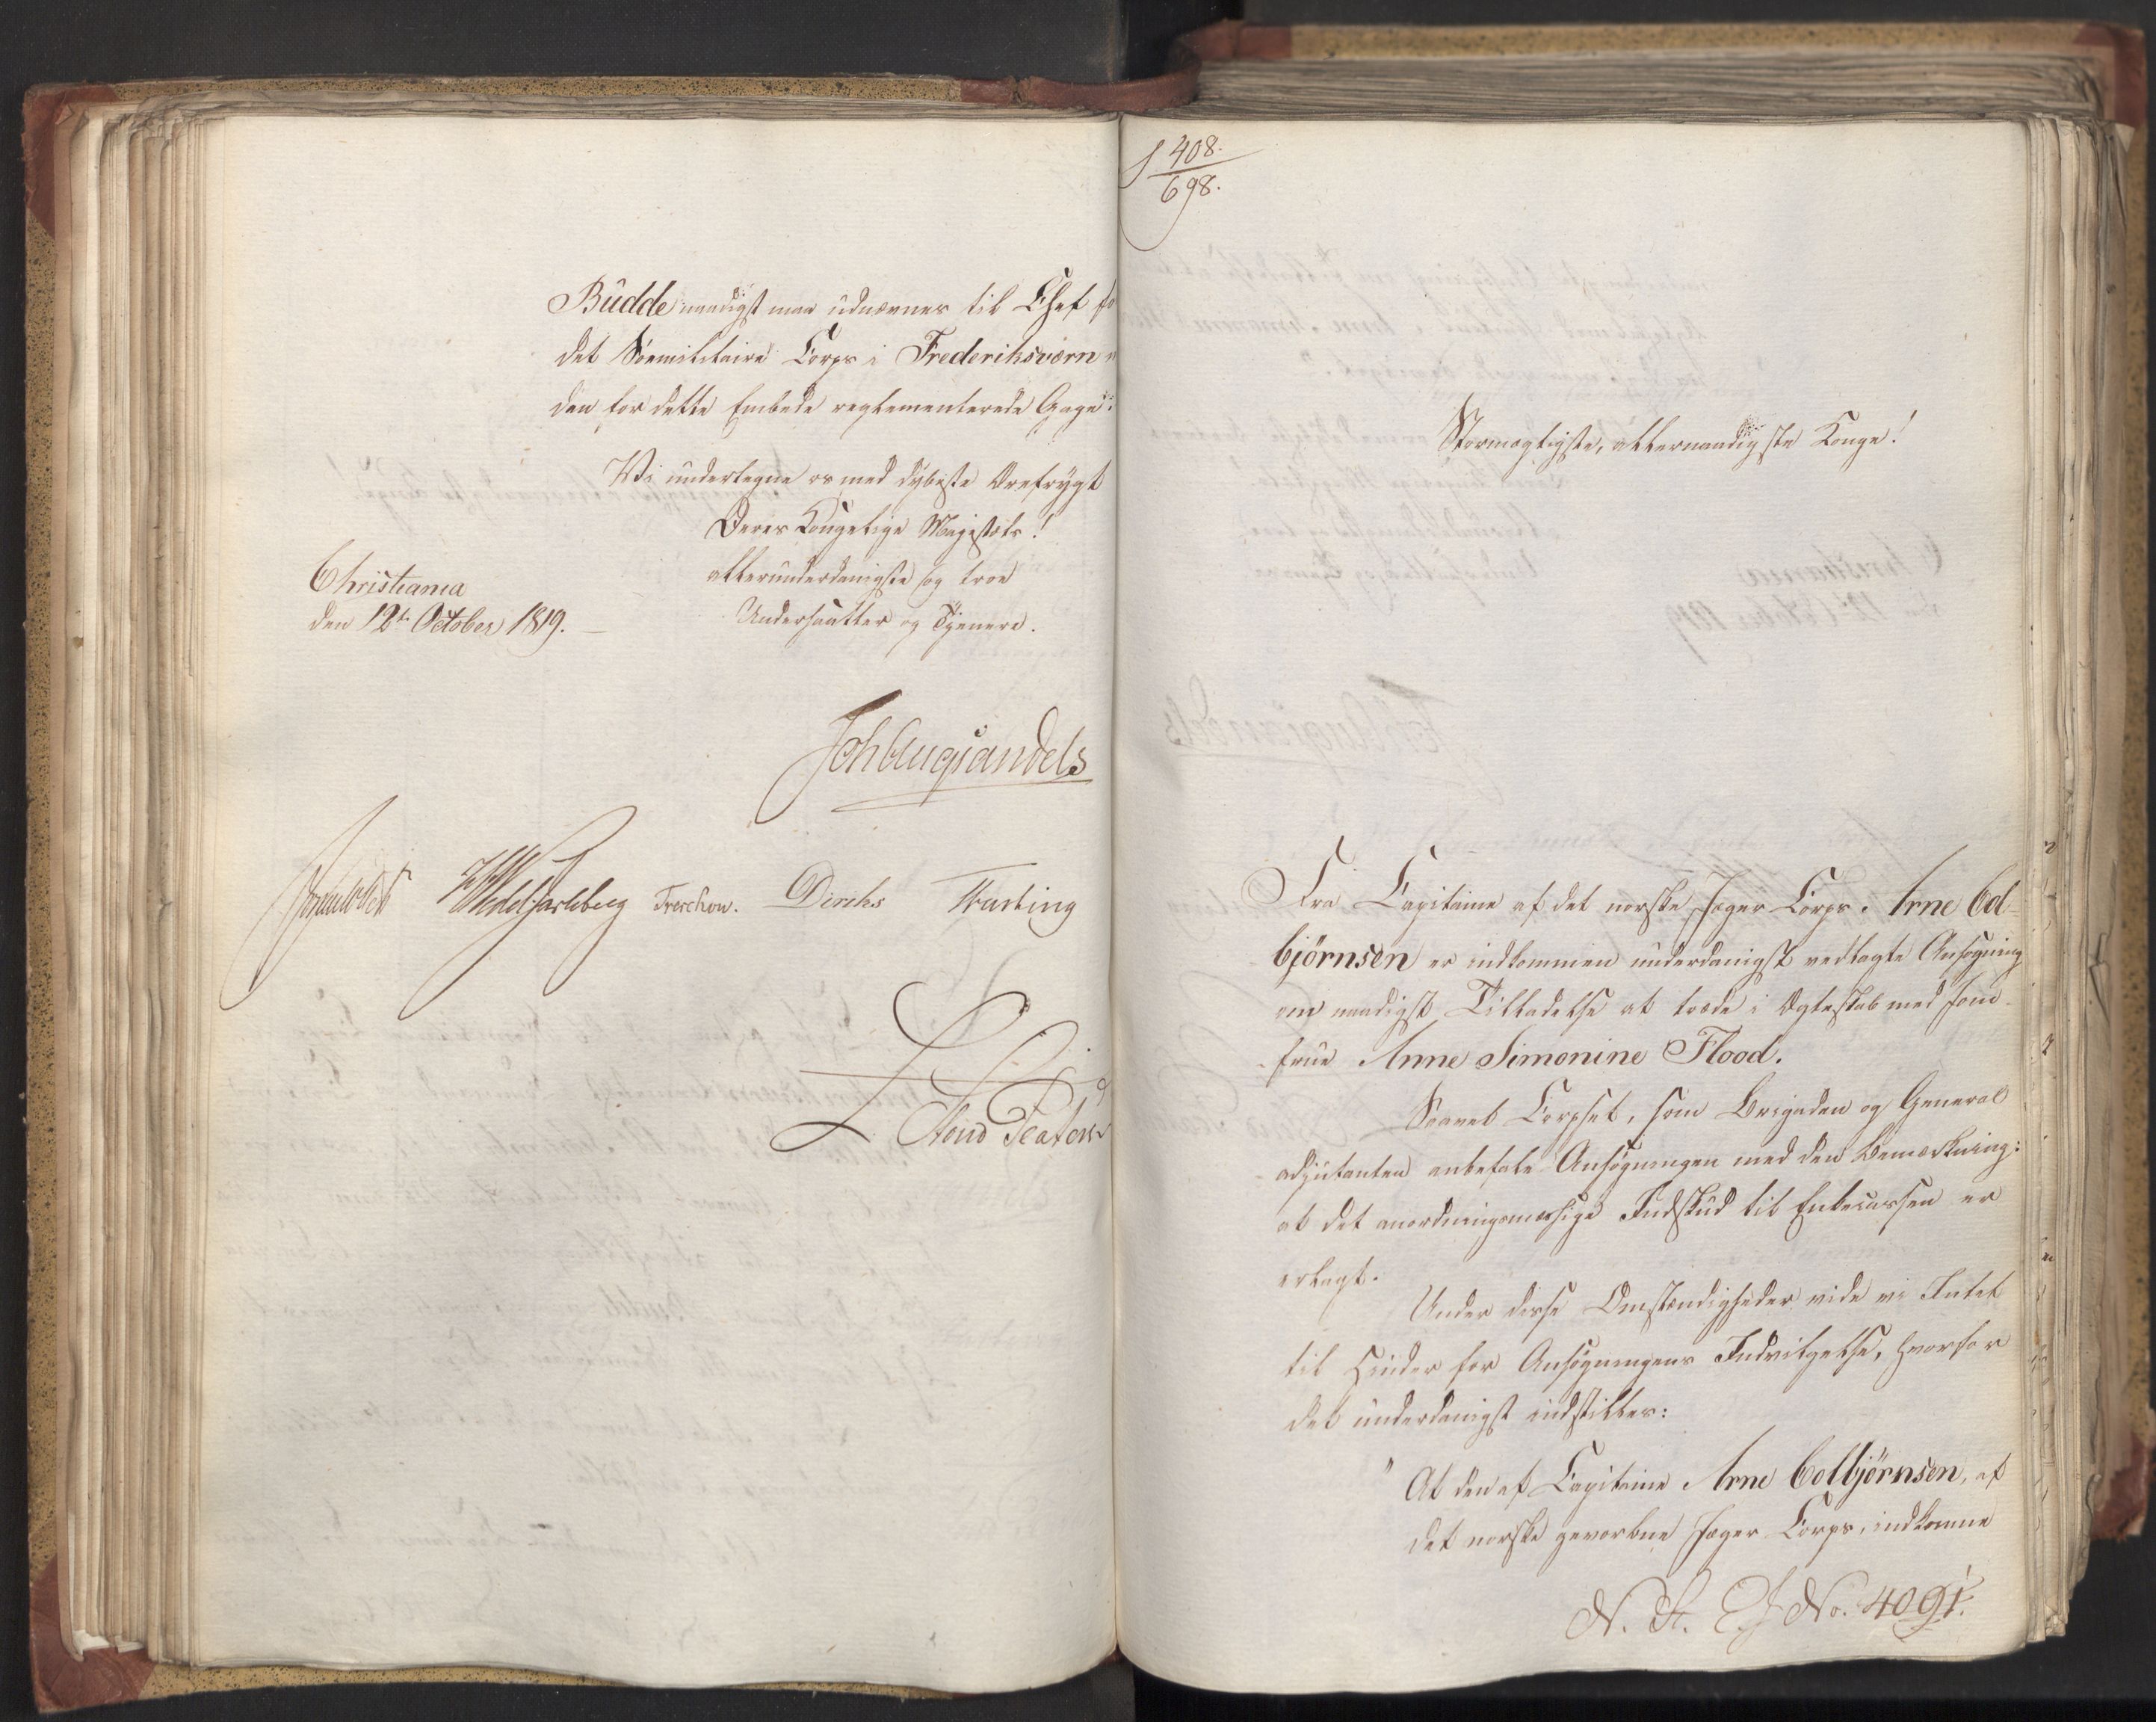 Büdde naadigst maa udnævnes til Chef fo
det Søemilitaire Corps i Frederiksværn
den for dette Embede reglementerede Gage:
Vi undertegne os med dybeste Ærefrygt
Deres Kongelige Majestæts!
allerunderdanigste og troe
Undersaatter og Tjenere.
Christiana
den 12te October 1819.
Joh Aug Sandels
Sommerhielm WedelJarlsberg Treschow. Diriks Fasting
408.
698.
Stormægtigste, allernaadigste Konge!
Fra Capitaine af det norske Jæger Corps. Arne Col-
bjørnsen er indkommen underdanigst vedlagte Ansøgning
om naadigst Tilladelse at træde i Ægteskab med Jom-
frue Anne Simonine Flood.
Saavel Corpset, som Brigaden og General
adjutanten anbefale Ansøgningen med den Bemærkning:
at det anordningsmæssige Indskud til Enkecassen er
erlagt.
Under disse Omstændigheder vide vi Intet
til Hinder for Ansøgningens Indvilgelse, hvorfor
det underdanigst indstilles:
" At den af Capitaine Arne Colbjørnsen, af
det norske gevorbne Jæger Corps, indkomne
No. 4091.